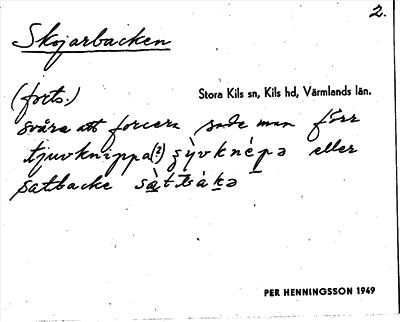 2.
Skojarbacken
(forts.)
Stora Kils sn, Kils hd, Värmlands län.
svåra att forcera sade man förr
tjuvknippa(?) ʂỳvknépə eller
satbacke sàtbákə
PER HENNINGSSON 1949